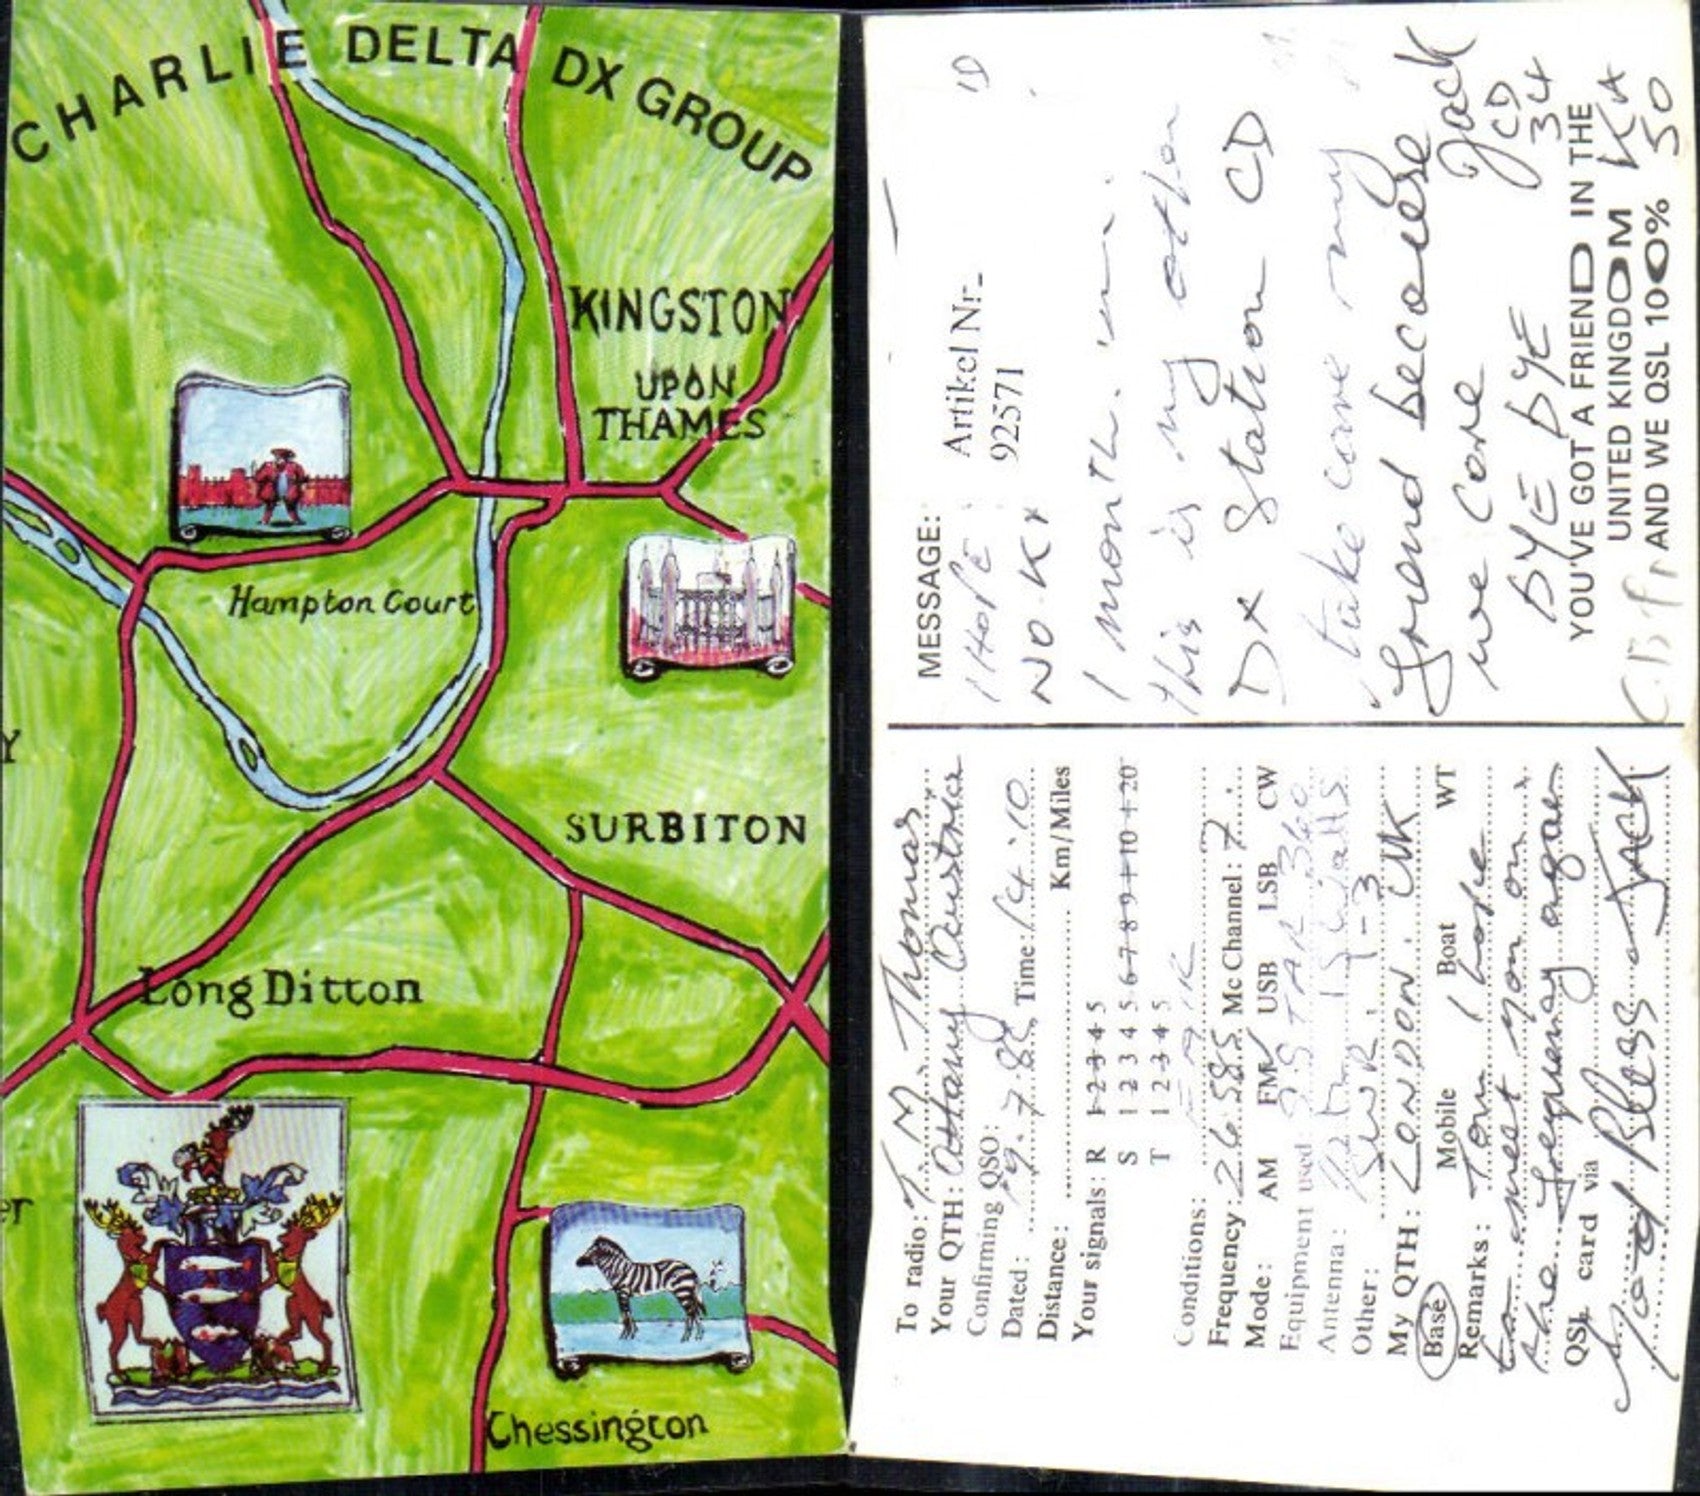 CHARLIE DELTA DX GROUP
KINGSTON
UPON
THAMES
Hampton Court
Y
SURBITON
Long Ditton
er
Chessington
MESSAGE:
Artikel Nr.
92571
I HOPE
NO
I month.
This is my other
DX Station CD
take care my
friend because
we Care Jack
BYE BYE CD
34
YOU'VE GOT A FRIEND IN THE
UNITED KINGDOM
AND WE QSL 100% 50
To radio: T.M. Thomas
Your QTH: Austria
Confirming QSO:
Dated: 19.7.88 Time: 14.10
Distance: Km/Miles
Your signals: R 1 2 3 4 5
S 1 2 3 4 5 6 7 8 9 +10 +20
T 1 2 3 4 5
Conditions: FAIR
Frequency: 26.585 Mc Channel: 7
Mode: AM FM USB LSB CW
Equipment used: STAR 360
Antenna:
Other: SWR: 1-3
My QTH: LONDON. UK
Base Mobile Boat WT
Remarks: Tom I hope
to meet you on
the frequency again
QSL card via
God Bless JACK